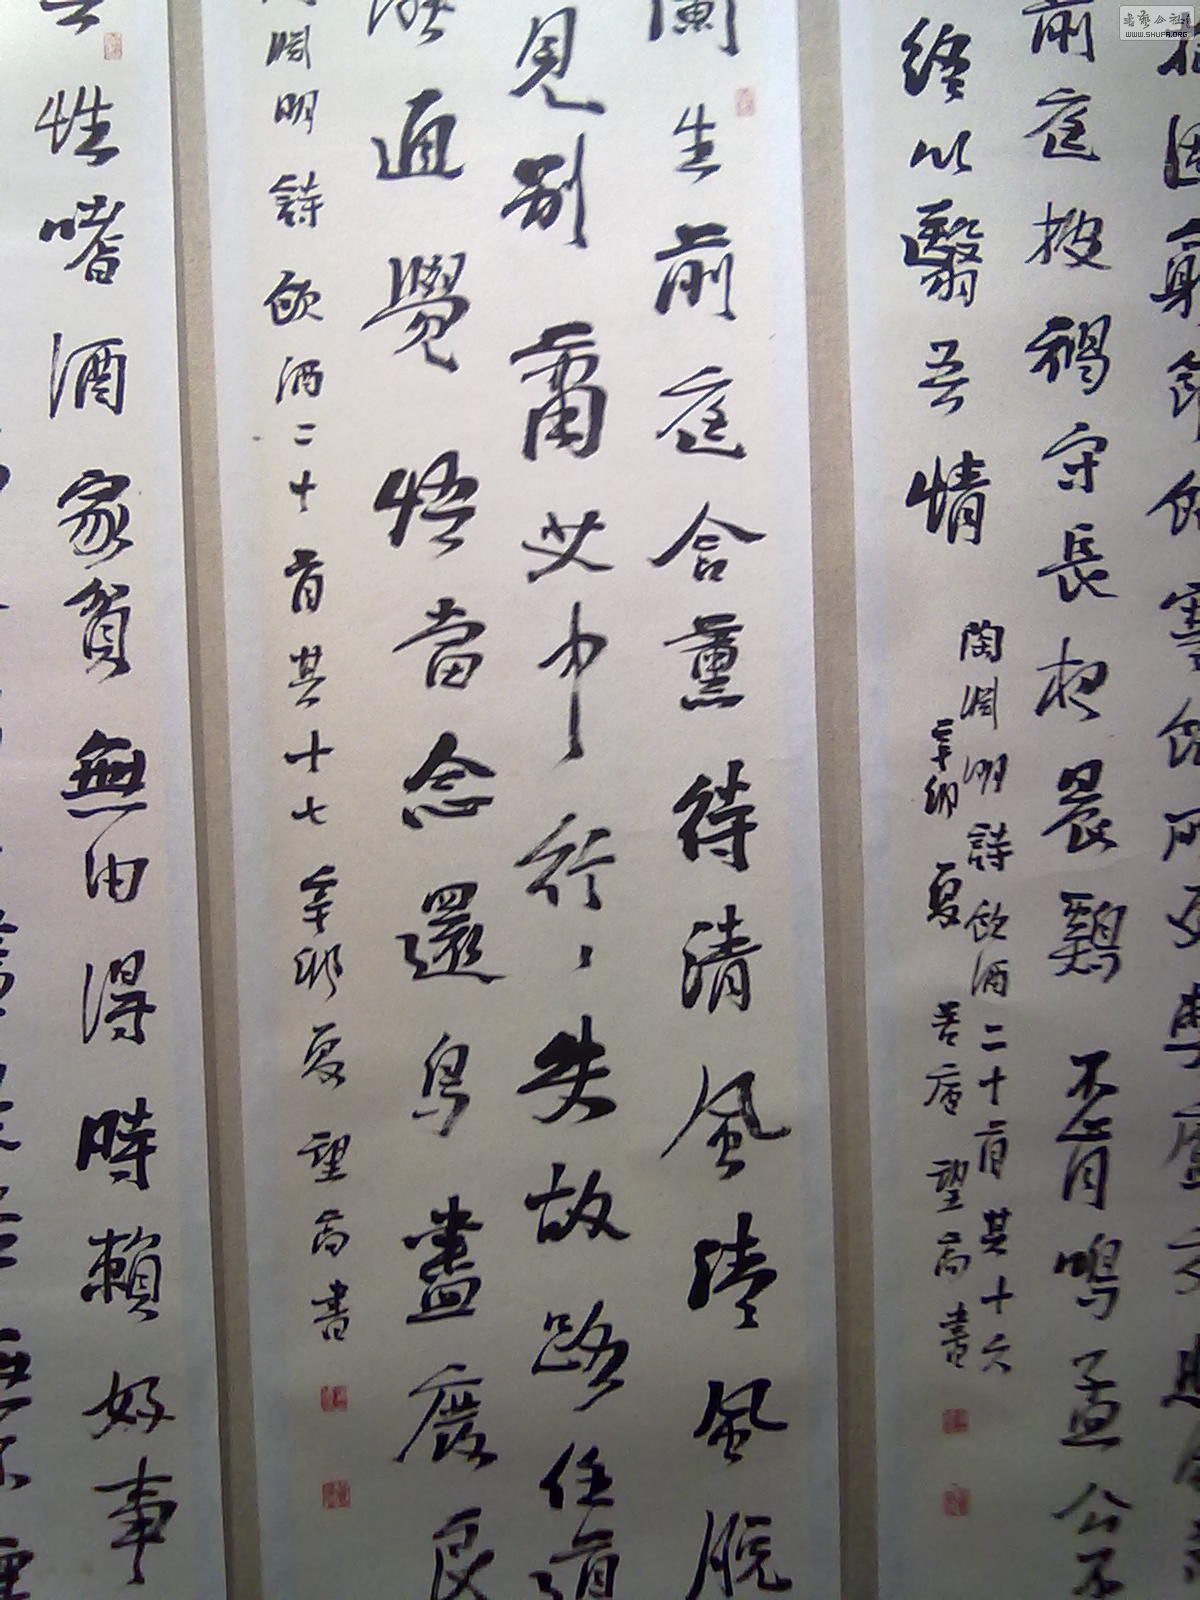 书艺公社
WWW.SHUFA.ORG
抱固窮節飢寒飽所更弊廬交悲風
前庭披褐守長夜晨雞不肯鳴孟公不
終以翳吾情
陶淵明詩飲酒二十首其十六
辛卯 夏 望高書
蘭生前庭含薰待清風清風脫
見別蕭艾中行、失故路任道
通覺悟當念還鳥盡廢良
淵明詩飲酒二十首其十七辛卯夏望高書
性嗜酒家貧無由得時賴好事